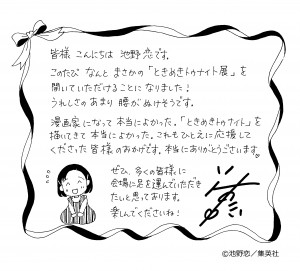 皆様 こんにちは 池野恋です。
このたび なんと まさかの「ときめきトゥナイト展」を
開いていただけることに なりました!
うれしさの あまり 腰がぬけそうです。
漫画家になって 本当によかった。「ときめきトゥナイト」を
描いてきて 本当によかった。これも ひとえに 応援して
くださった 皆様の おかげです。本当にありがとうございます♡
ぜひ、多くの皆様に
会場に足を運んでいただき
たいと思っております。
楽しんでくださいね!
©池野恋/集英社